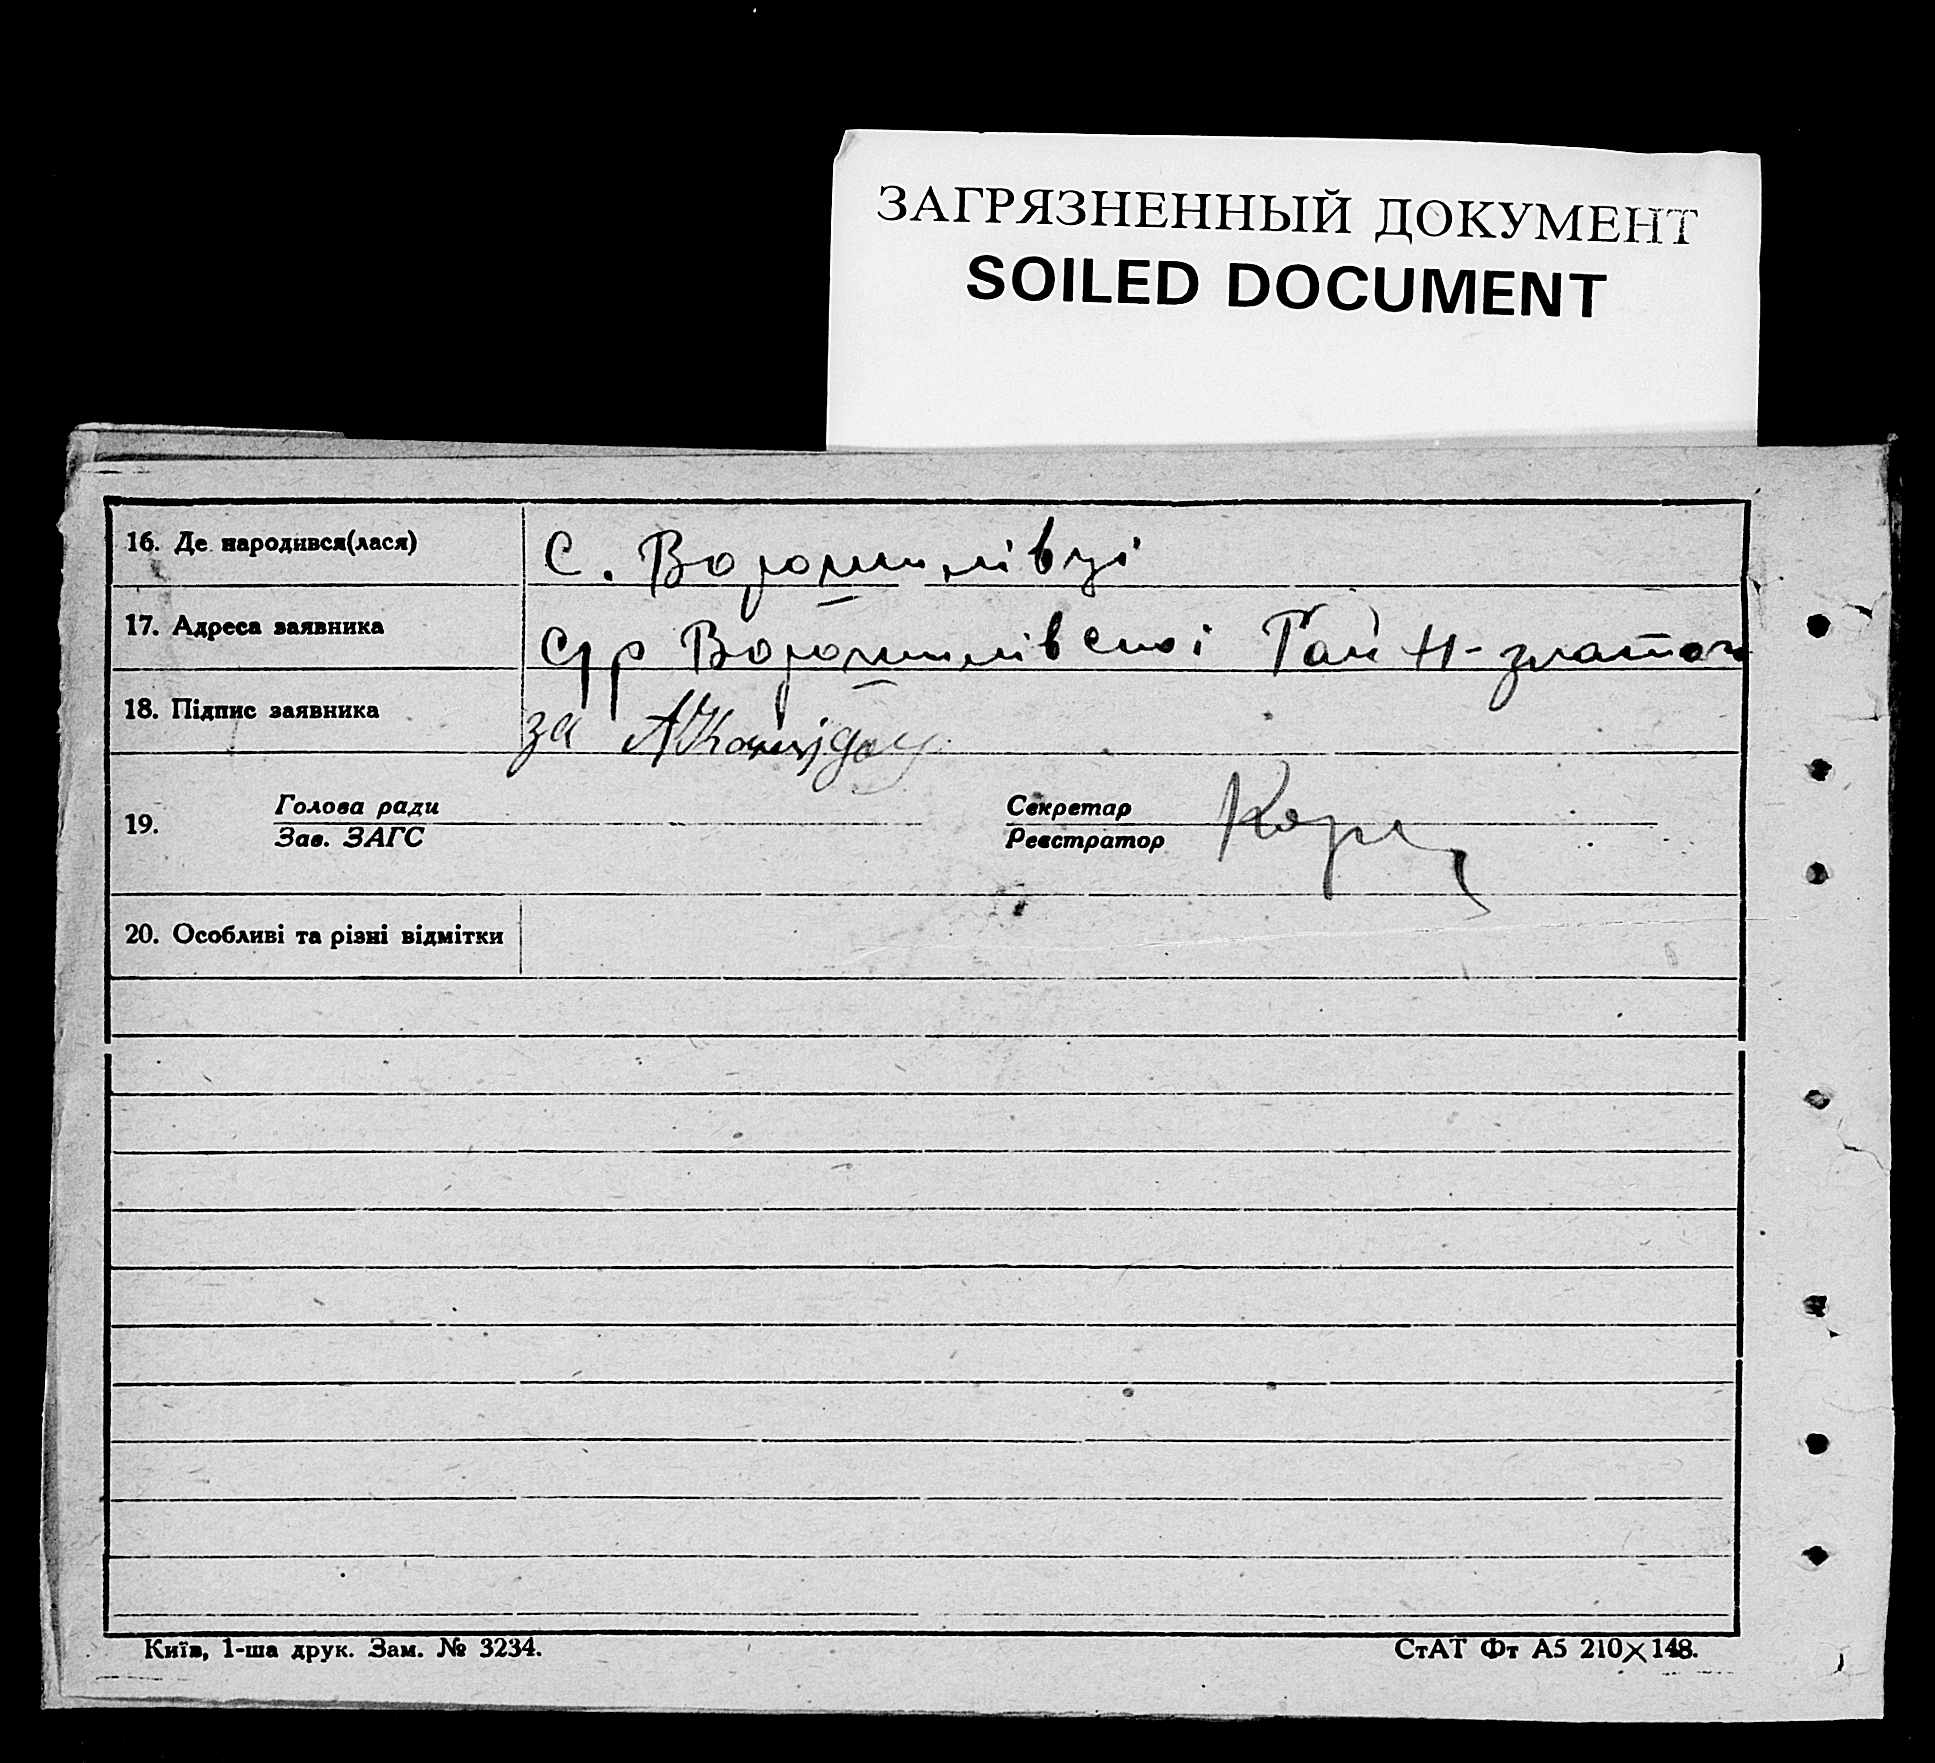 ЗАГРЯЗНЕННЫЙ ДОКУМЕНТ
SOILED DOCUMENT
16. Де народився(лася) С. Ворошилівці
17. Адреса заявника Ворошилівської
18. Підпис заявника за
19. Голова ради Секретар
Зав. ЗАГС Реєстратор
20. Особливі та різні відмітки
Київ, 1-ша друк. Зам. № 3234. СтАТ Фт А5 210×148.